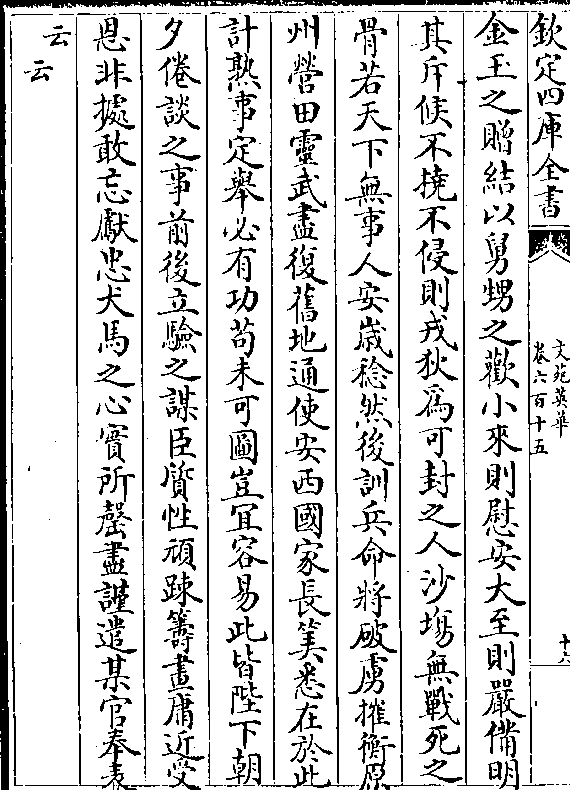 欽定四庫全書
文苑英華
卷六百十五
十六
金玉之贈結以舅甥之歡小來則慰安大至則嚴備明
其斥候不撓不侵則戎狄為可封之人沙塲無戰死之
骨若天下無事人安歲稔然後訓兵命將破虜摧衡原
州營田靈武盡復舊地通使安西國家長筭悉在於此
計熟事定舉必有功苟未可圖豈冝容易此皆陛下朝
夕倦談之事前後立驗之謀臣質性頑踈籌畫庸近受
恩非據敢忘獻忠犬馬之心實所罄盡謹遣某官奉表
云云